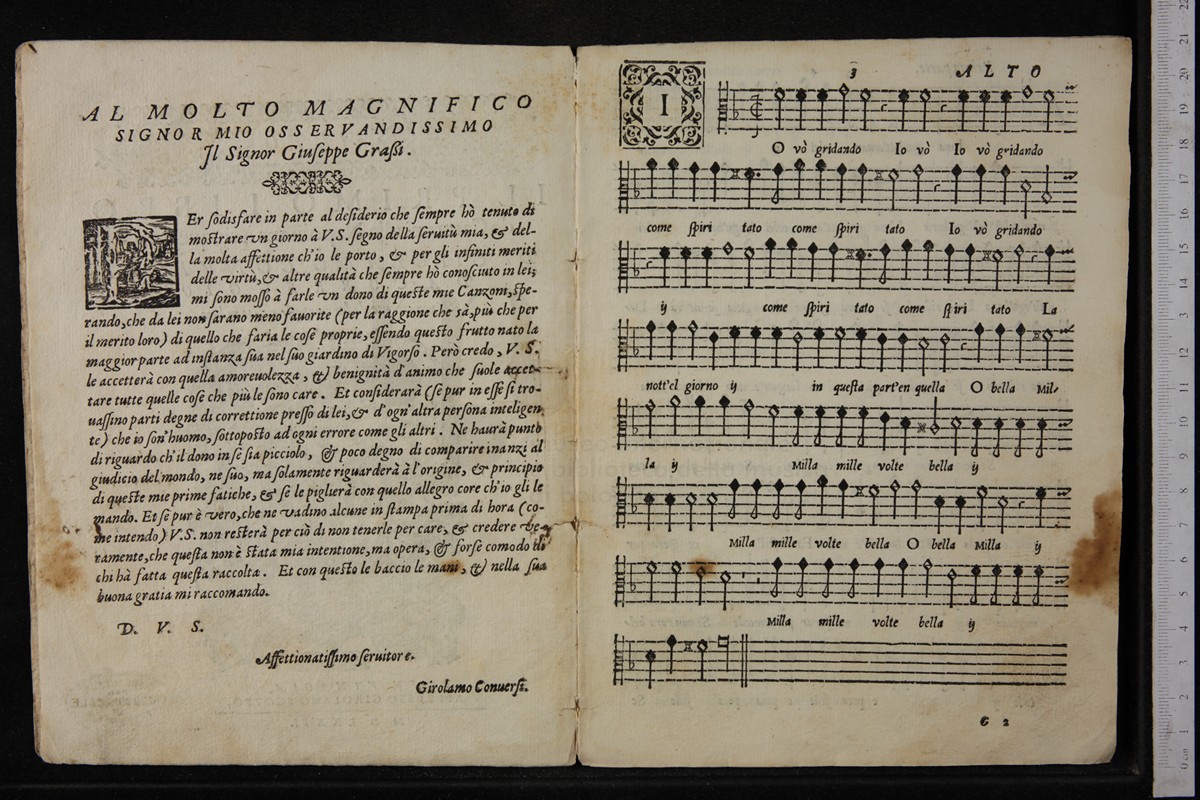 AL MOLTO MAGNIFICO
SIGNOR MIO OSSERVANDISSIMO
Il Signor Giuseppe Grassi.
PEr sodisfare in parte al desiderio che sempre hò tenuto di
mostrare vn giorno à V. S. segno della seruitù mia, & del-
la molta affettione ch'io le porto, & per gli infiniti meriti
delle virtù, & altre qualità che sempre hò conosciuto in lei;
mi sono mosso à farle vn dono di queste mie Canzoni, spe-
rando, che da lei non sarano meno fauorite (per la raggione che sà, più che per
il merito loro) di quello che faria le cose proprie, essendo questo frutto nato la
maggior parte ad instanza sua nel suo giardino di Vigorso. Però credo, V. S.
le accetterà con quella amoreuolezza, & benignità d'animo che suole accet-
tare tutte quelle cose che più le sono care. Et considerarà (se pur in esse si tro-
uassino parti degne di correttione presso di lei, & d'ogn'altra persona inteligen-
te) che io son'huomo, sottoposto ad ogni errore come gli altri. Ne haurà punto
di riguardo ch'il dono in se sia picciolo, & poco degno di comparire inanzi al
giudicio del mondo, ne suo, ma solamente riguarderà à l'origine, & principio
di queste mie prime fatiche, & se le piglierà con quello allegro core ch'io gli le
mando. Et se pur è vero, che ne vadino alcune in stampa prima di hora (co-
me intendo) V. S. non resterà per ciò di non tenerle per care, & credere ve-
ramente, che questa non è stata mia intentione, ma opera, & forse comodo di
chi hà fatta questa raccolta. Et con questo le baccio le mani, & nella sua
buona gratia mi raccomando.
D. V. S.
Affettionatissimo seruitore.
Girolamo Conuersi.
3 ALTO
I
O vò gridando Io vò Io vò gridando
come spiri tato come spiri tato Io vò gridando
ij come spiri tato come spiri tato La
nott'el giorno ij in questa part'en quella O bella Mil-
la ij Milla mille volte bella ij
Milla mille volte bella O bella Milla ij
Milla mille volte bella ij
G 2